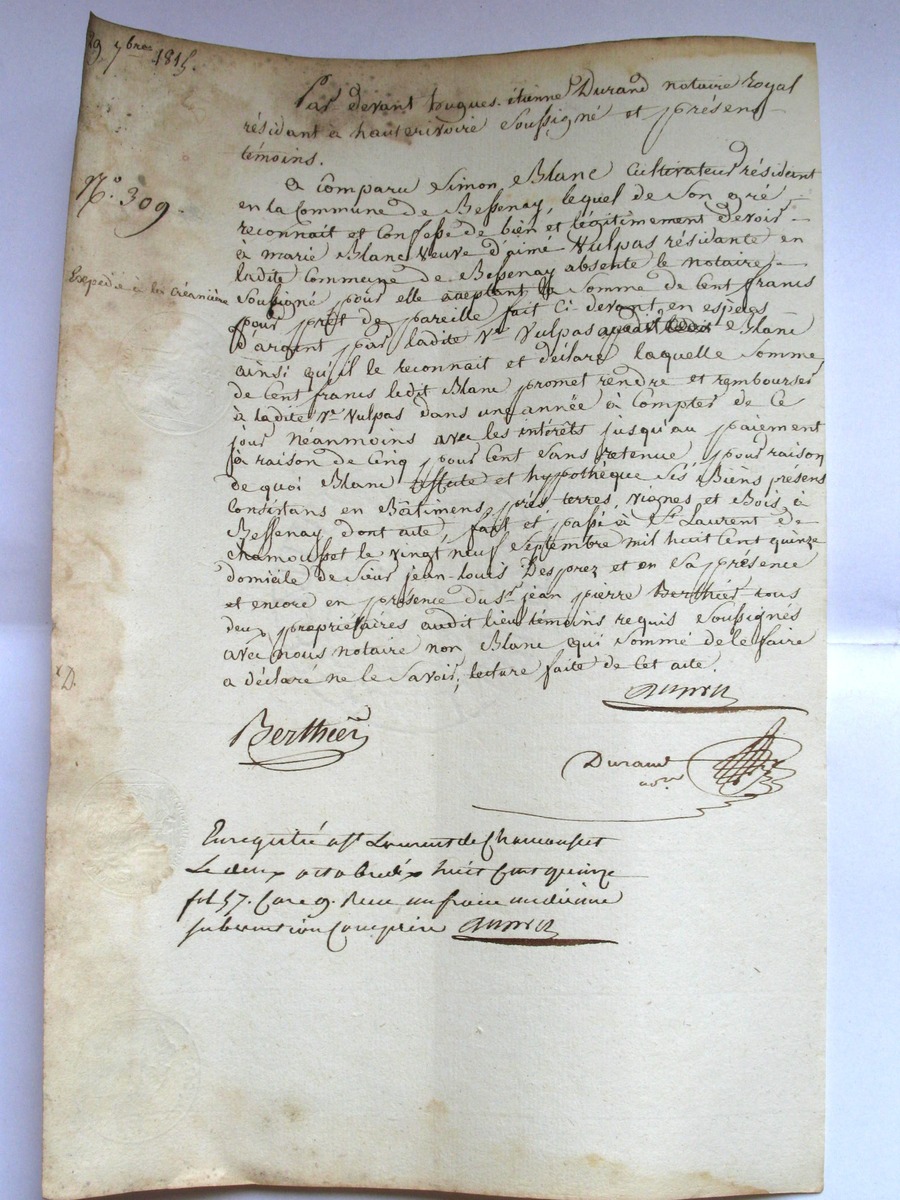 29 7bre 1815.
Par devant hugues étienne Durand notaire Royal
résidant à hauterivoire soussigné et présens
témoins.
N° 309.
a Comparu Simon Blanc Cultivateur résidant
en la Commune de Bessenay, lequel de son gré
reconnait et Confesse de bien et légitimement devoir
à marie Blanc veuve d'aimé Vulpas résidante en
ladite Commune de Bessenay absente le notaire
Expédié à la créancière
soussigné pour elle aceptant la somme de Cent francs
pour prêt de pareille fait Ci-devant en espèces
d'argent par ladite Ve Vulpas audit Blanc
ainsi qu'il le reconnait et déclare laquelle somme
de Cent francs ledit Blanc promet rendre et rembourser
à ladite Ve Vulpas dans une année à Compter de Ce
jour Néanmoins avec les intérêts jusqu'au paiement
à raison de Cinq pour Cent sans retenue pour raison
de quoi Blanc affecte et hypothèque ses Biens présens
Consistans en Bâtimens, prés, terres, vignes et Bois à
Bessenay dont acte, fait et passé à St Laurent de
Chamousset le vingt neuf Septembre mil huit Cent quinze
domicile de Sieur jean-louis Desprez et en sa présence
et encore en présence du Sr jean pierre Berthier tous
deux propriétaires audit lieu témoins requis soussignés
avec nous notaire non Blanc qui sommé de le faire
a déclaré ne le savoir, lecture faite de Cet acte.
Berthier
Durand
nore
Enregistré à St Laurent de Chamousset
Le deux octobre dix huit Cent quinze
fol 57. Case 9. Reçu un franc un décime
subvention Comprise